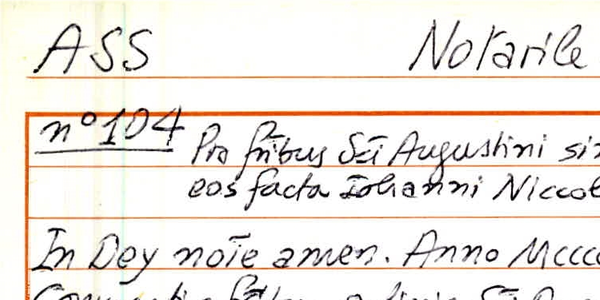 ASS Notarile
n° 104
Pro fribus Sti Augustini
eos facta Iohanni Niccol
In Dey noie amen. Anno Mcccc